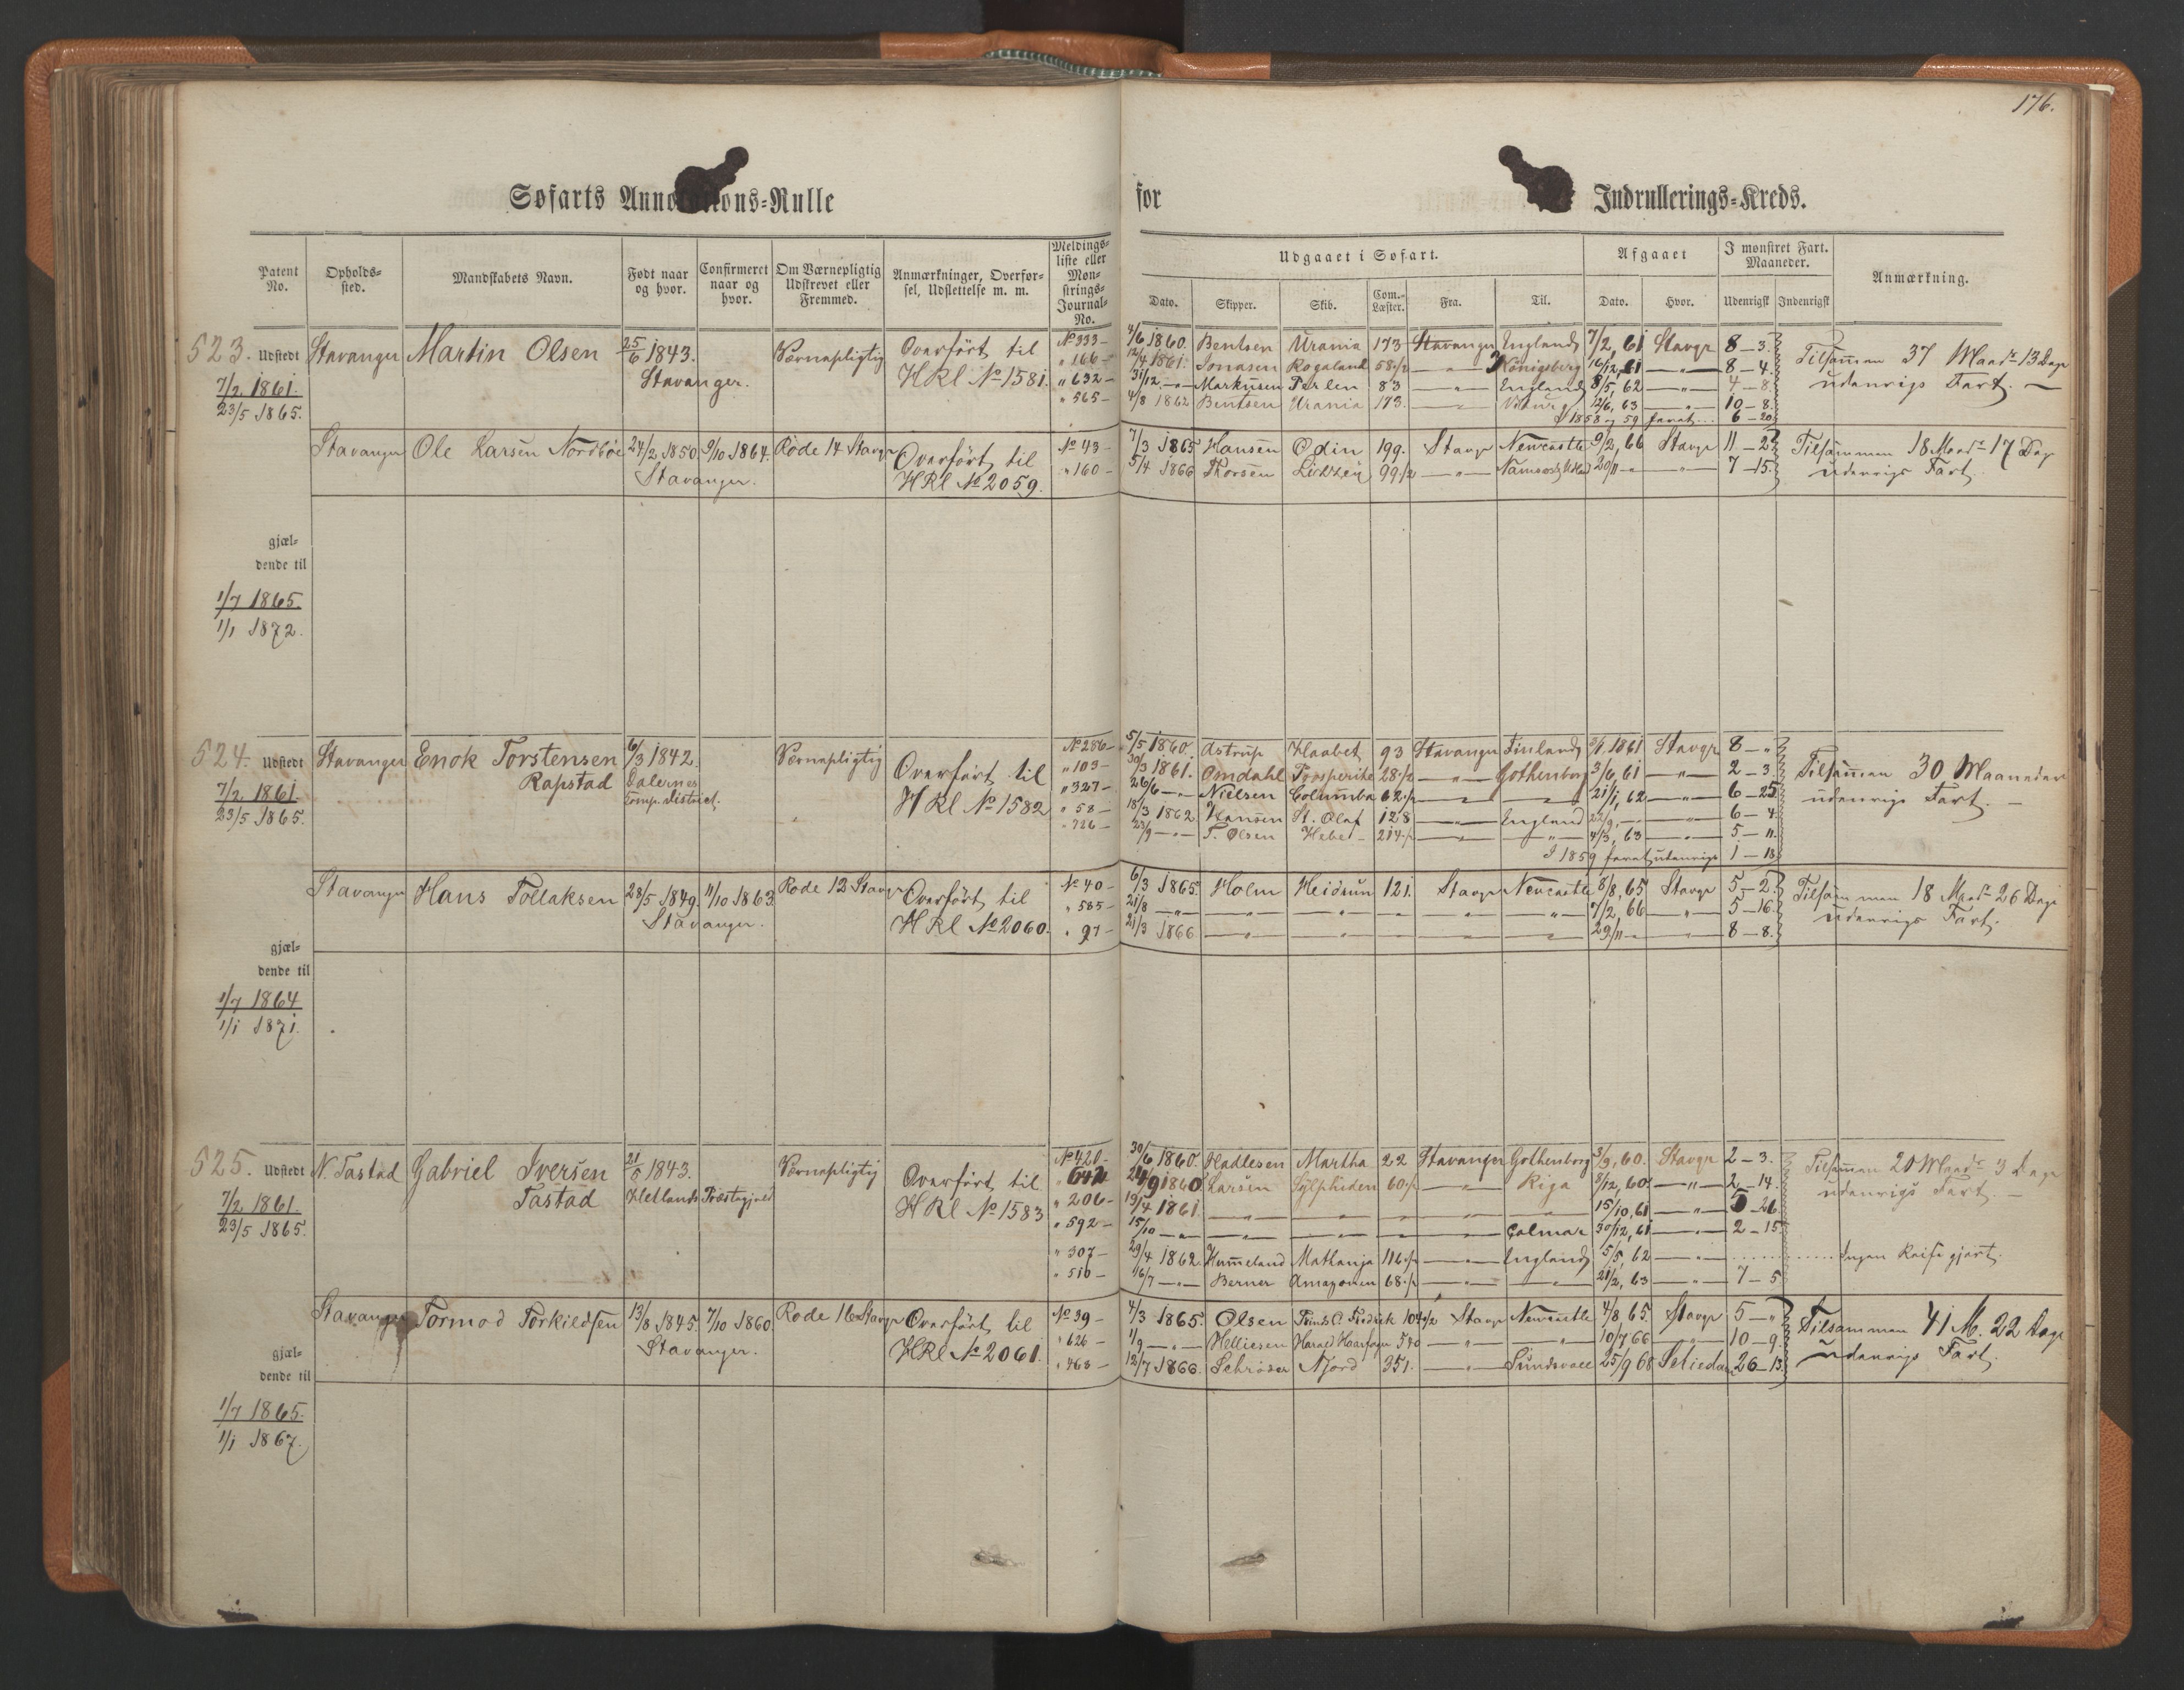 176.
Søfarts Annotations-Rulle for Indrullerings-Kreds.
Patent No. Opholdssted. Mandskabets Navn. Født naar og hvor. Confirmeret naar og hvor. Om Værnepligtig Udskrevet eller Fremmed. Anmærkninger, Overførsel, Udslettelse m. m. Meldingsliste eller Mønstrings-Journal-No.
Udgaaet i Søfart. Afgaaet I mønstret Fart. Maaneder. Anmærkning.
Dato. Skipper. Skib. Com.-Læster. Fra. Til. Dato. Hvor. Udenrigsk Indenrigsk
523. Udstedt Stavanger Martin Olsen 25/6 1843. Værnepligtig Overført til № 333 4/6 1860. Bentsen Urania 173 Stavanger England 7/2, 61 Stavgr 8-3.
7/2 1861. Stavanger. HRl № 1581. " 166 12/4 1861. Jonasen Rogaland 58 1/2 — " — Königsberg 16/12, 61 — " — 8-4. Tilsammen 37 Maadr 13 Dage
23/5 1865. " 632 31/12 — " — Markusen Perlen 83 — " — England 8/5, 62 — " — 4-8 udenrigs Fart. —
" 565 4/8 1862 Bentsen Urania 173. — " — 12/6, 63 — " — 10-8.
I 1858 og 59 faret... 6-20
Stavanger Ole Larsen Nordbøe 24/2 1850 9/10 1864. Rode 14 Stavgr Overført til № 43 7/3 1865 Hansen Odin 199. Stavgr Newcastle 9/2, 66 Stavgr 11-2 Tilsammen 18 Maadr 17 Dage
Stavanger. HRl № 2059. " 160 5/4 1866 Thorsen 99 1/2 — " — 20/11 — " — 7-15. udenrigs Fart.
gjæl-
dende til
1/7 1865.
1/1 1872.
524. Udstedt Stavanger Enok Torstensen 6/3 1842. Værnepligtig № 286 5/5 1860. Astrup Haabet 93 Stavanger Finland 3/1 1861 Stavgr 8 - "
7/2 1861. Rapstad Dalernes Overført til " 103 30/3 1861. Omdahl 28 1/2 — " — Gothenborg 3/6, 61 — " — 2-3. Tilsammen 30 Maaneder
23/5 1865. Comp. district. HRl № 1582 " 327 26/6 — " — Nielsen Columba 62 1/2 — " — 21/1, 62 — " — 6-25 udenrigs Fart. —
" 58 18/3 1862 Hansen St. Olaf 128 — " — England 22/9, — " — 6-4
" 726 23/9 — " — T. Olsen Hebe 214 1/2 — " — 4/3, 63 — " — 5-11.
I 1859 faret udenrigs 1-18
Stavanger Hans Tollaksen 28/5 1849. 11/10 1863 Rode 12 Stavgr Overført til № 40 6/3 1865. Holm Heidrun 121. Stavgr Newcastle 8/8, 65 Stavgr 5-2. Tilsammen 18 Maadr 26 Dage
Stavanger. HRl № 2060. " 585 21/8 — " — 7/2, 66 — " — 5-16. udenrigs Fart.
" 97 21/3 1866 — " — 29/11 — " — 8-8.
gjæl-
dende til
1/7 1864
1/1 1871.
525. Udstedt N. Tastad Gabriel Iversen 21/5 1843. Værnepligtig № 420 30/6 1860. Hadlesen Martha 22 Stavanger Gothenborg 3/9, 60. Stavgr 2-3. Tilsammen 20 Maadr 3 Dage
7/2 1861. Tastad Hetlands Præstegjeld Overført til " 642 24/9 1860 Larsen Sylphiden 60 1/2 — " — Riga 8/12, 60 — " — 2-14. udenrigs Fart. —
23/5 1865. HRl № 1583 " 206 19/4 1861. — " — 15/10, 61 — " — 5-26
" 592 15/10 — " — Calmar 30/12, 61 — " — 2-15
" 307 29/4 1862 Hummeland Mathanja 116 1/2 — " — England 5/5, 62 — " — ...... Ingen Reise gjort.
" 510 16/7 — " — Berner Amazonen 68 1/2 — " — 21/2, 63 — " — 7-5
Stavanger Tormod Torkildsen 13/8 1845. 7/10 1860 Rode 16 Stavgr Overført til № 39 4/3 1865. Olsen Prinds C. Fredrik 104 1/2 Stavgr Newcastle 4/8, 65. Stavgr 5 - " Tilsammen 41 M. 22 Dage
Stavanger. HRl № 2061. " 626 1/9 — " — Helliesen Harald Haarfager 540 — " — 10/7 66 — " — 10-9. udenrigs Fart.
" 463 12/7 1866. Schrøder Njord 351. — " — Sundsvall 25/9 68 26-13.
gjæl-
dende til
1/7 1865.
1/1 1867.